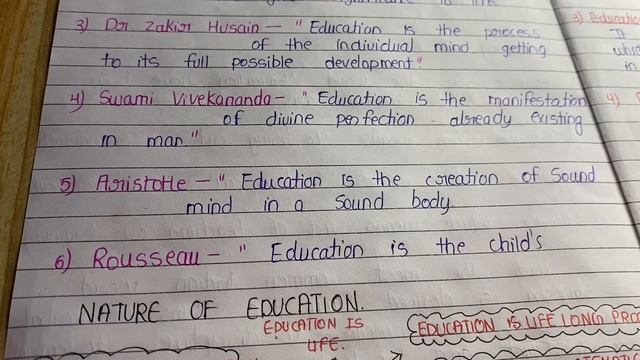 3) Dr Zakir Husain - "Education is the process
of the individual mind getting
to its full possible development"
4) Swami Vivekananda - "Education is the manifestation
of divine perfection already existing
in man."
5) Aristotle - "Education is the creation of Sound
mind in a Sound body.
6) Rousseau - " Education is the child's
NATURE OF EDUCATION.
EDUCATION IS
LIFE.
EDUCATION IS LIFE LONG PRO
3) Educatio
It
whic
in
4)